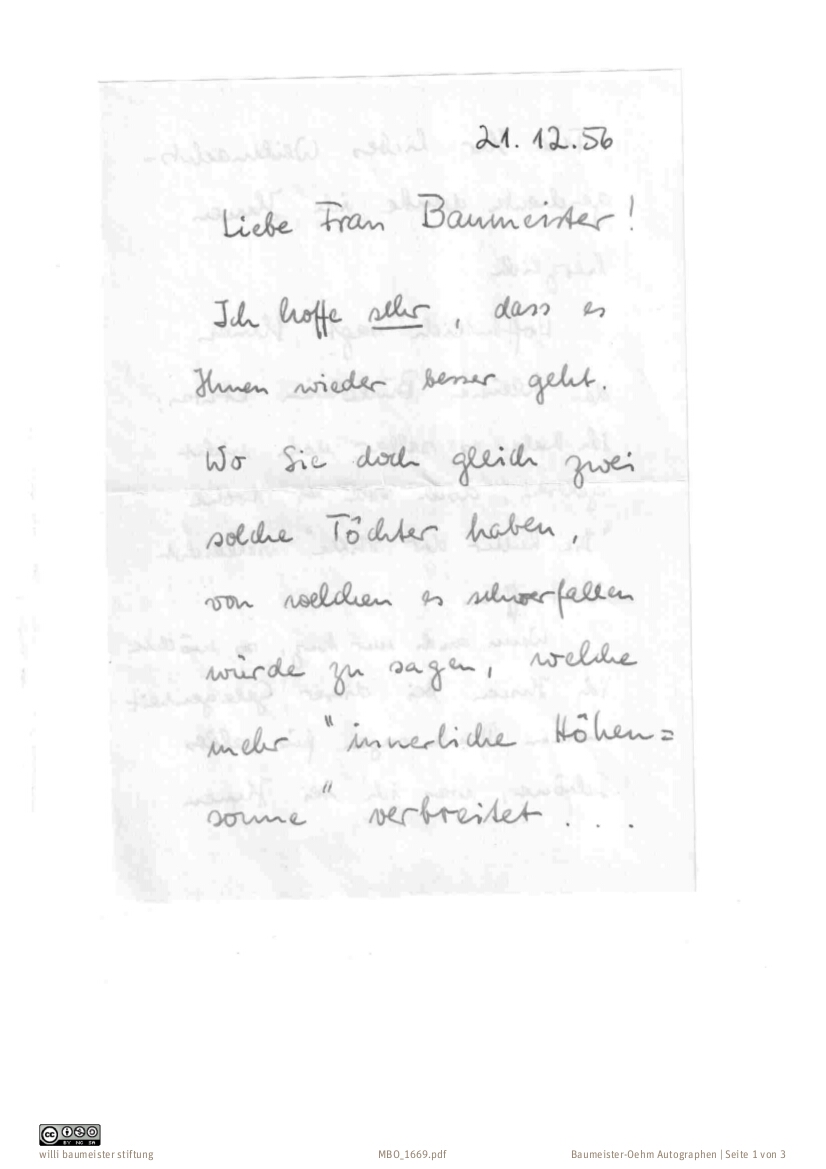 21. 12. 56
Liebe Frau Baumeister!
Ich hoffe sehr, dass es
Ihnen wieder besser geht.
Wo Sie doch gleich zwei
solche Töchter haben,
von welchen es schwerfallen
würde zu sagen, welche
mehr "innerliche Höhen=
sonne" verbreitet . . .
cc BY NC SA
willi baumeister stiftung
MBO_1669.pdf
Baumeister-Oehm Autographen | Seite 1 von 3